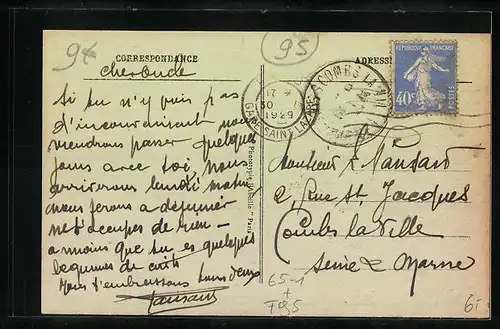 9€
95
CORRESPONDANCE
ADRESSE
RÉPUBLIQUE FRANÇAISE
40c
POSTES
COMBS LA VILLE
17
30
1929
GARE SAINT LAZARE
cher oncle
Si tu n'y vois pas
d'inconvénient nous
viendrons passer quelques
jours avec toi, nous
arriverons lundi matin
nous ferons a déjeuner
ne t'occupes de rien -
a moins que tu es quelques
legumes de cuits
Nous t'embrassons tous deux
Mansard
Paris
Monsieur L Mansard
2, Rue St Jacques
Combs la Ville
Seine & Marne
65-1
+
F95
6i